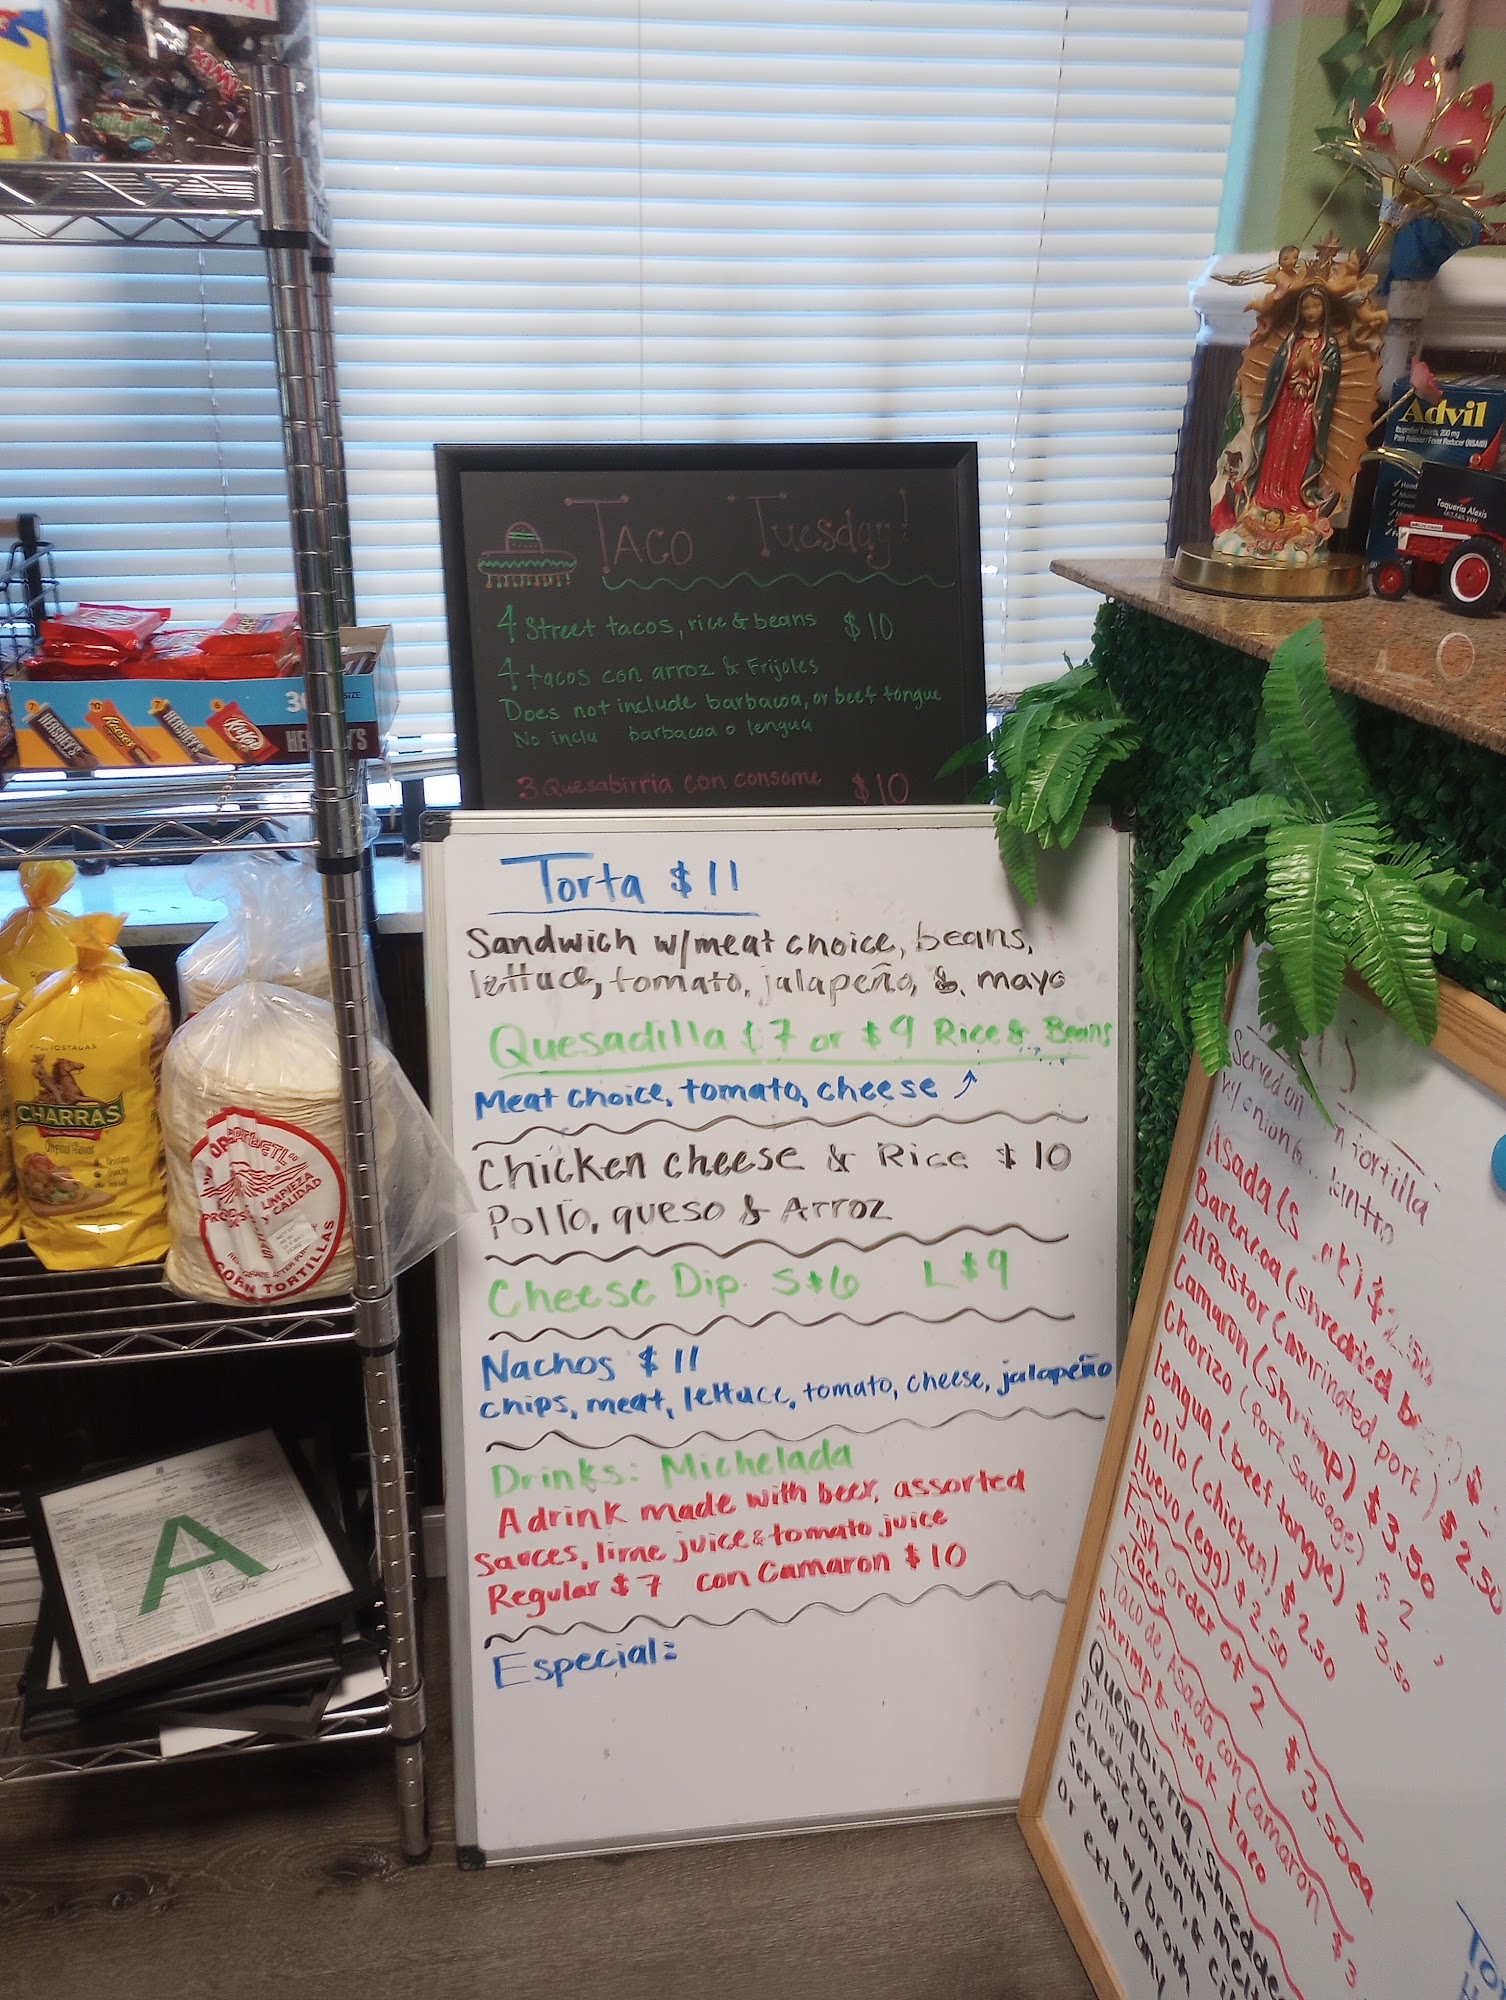 TACO Tuesday!
4 Street tacos, rice & beans $10
4 tacos con arroz & Frijoles
Does not include barbacoa, or beef tongue
No inclu barbacoa o lengua
3 Quesabirria con consome $10
Torta $11
Sandwich w/meat choice, beans,
lettuce, tomato, jalapeño, & mayo
Quesadilla $7 or $9 Rice & Beans
Meat choice, tomato, cheese ↑
Chicken cheese & Rice $10
Pollo, queso & Arroz
Cheese Dip S $6 L $9
Nachos $11
chips, meat, lettuce, tomato, cheese, jalapeño
Drinks: Michelada
A drink made with beer, assorted
sauces, lime juice & tomato juice
Regular $7 con Camaron $10
Especial:
Served on tortilla
w/onion &
Asada (S
Barbacoa (shredded
Al Pastor (marinated pork) $2.50
Camaron (shrimp) $3.50
Chorizo (Pork sausage)
lengua (beef tongue) $3.50
Pollo (chicken) $2.50
Huevo (egg) $2.50
Fish order of 2 $3.50ea
Tacos
Taco de Asada con Camaron $3
Shrimp & steak taco
Quesabirria: Shredde
grilled taco with mel
Cheese, onion, & ci
served w/ broth
or extra any
Advil
Ibuprofen Tablets, 200 mg
Pain Reliever/Fever Reducer (NSAID)
Taqueria Alexis
TWIX
HERSHEY'S
Reese's
HERSHEY'S
Kit Kat
30
SIZE
HERSHEY'S
TOSTADAS
CHARRAS
Original Flavor
LIMPIEZA
Y CALIDAD
CORN TORTILLAS
A